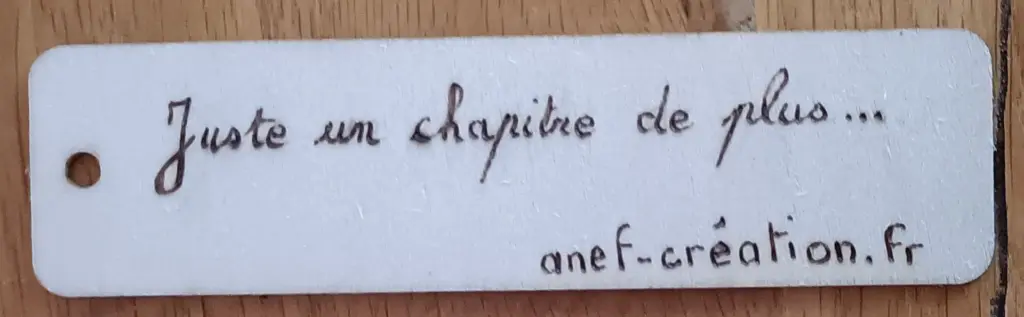 Juste un chapitre de plus...
anef-création.fr